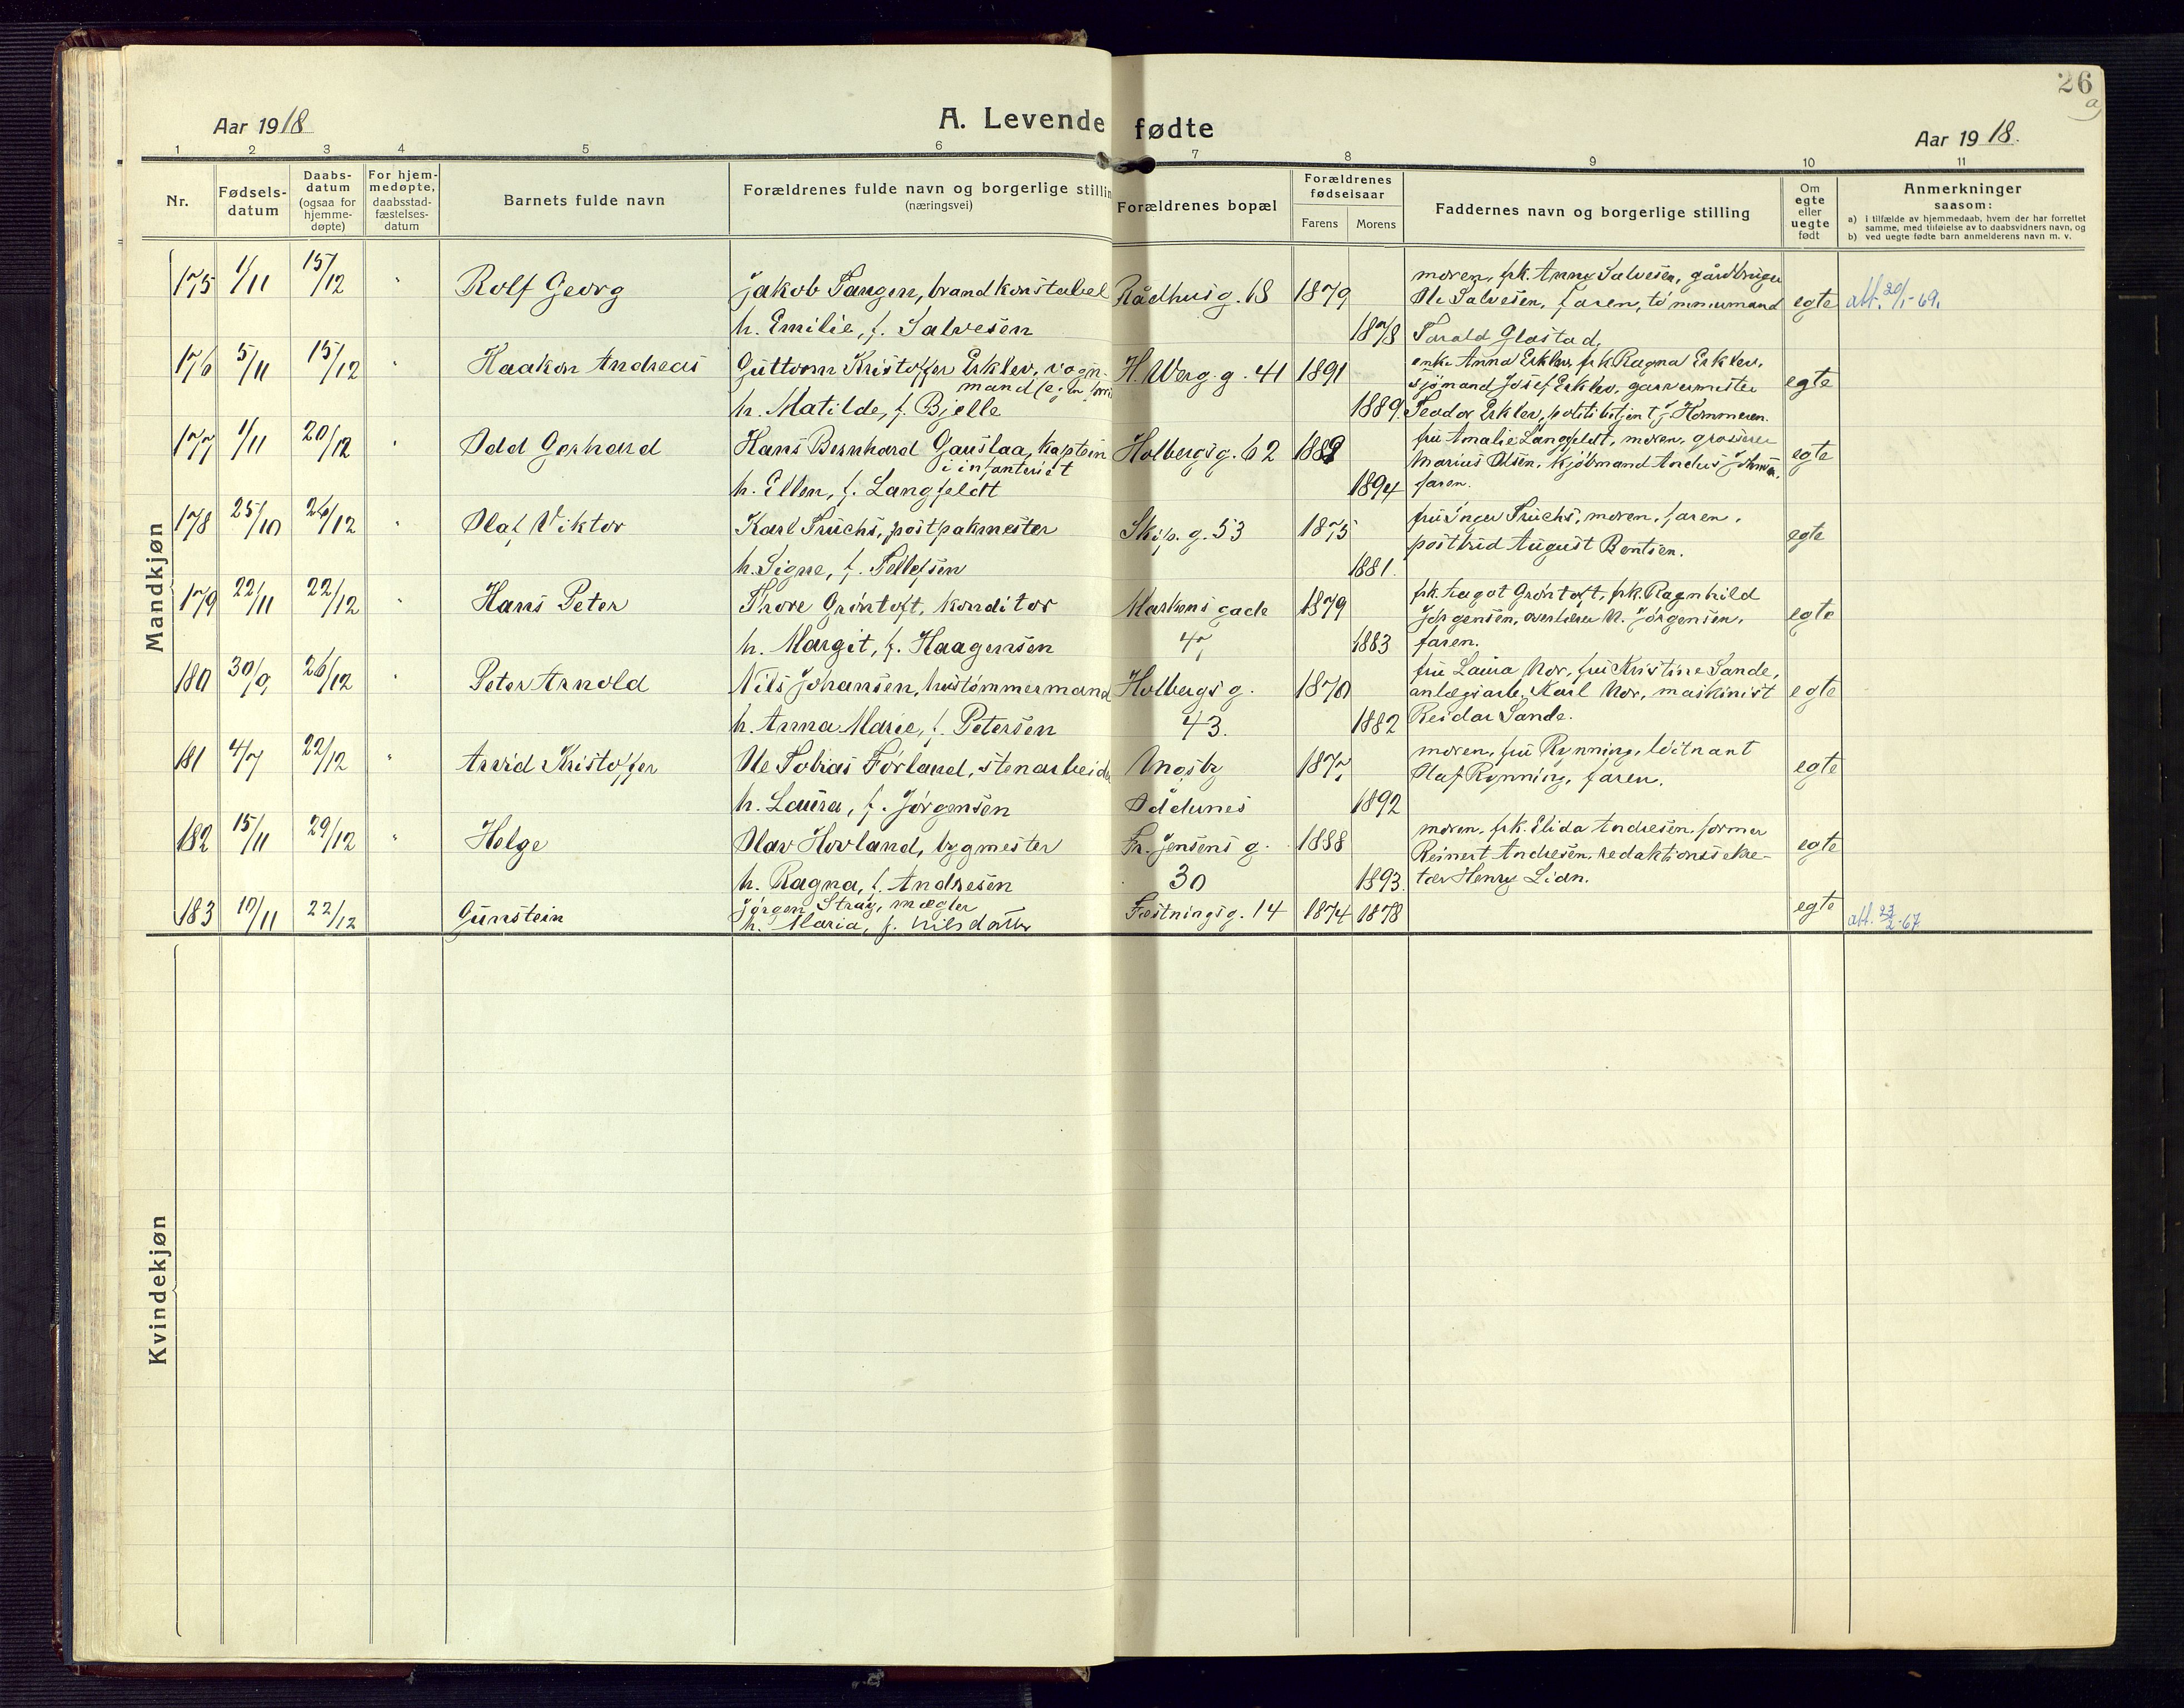 26
a
Aar 1918
A. Levende fødte
Aar 1918.
1 2 3 4 5 6 7 8 9 10 11
Nr.
Fødsels-
datum
Daabs-
datum
(ogsaa for
hjemme-
døpte)
For hjem-
medøpte,
daabsstad-
fæstelses-
datum
Barnets fulde navn
Forældrenes fulde navn og borgerlige stillin
(næringsvei)
Forældrenes bopæl
Forældrenes
fødselsaar
Farens Morens
Faddernes navn og borgerlige stilling
Om
egte
eller
uegte
født
Anmerkninger
saasom:
a) i tilfælde av hjemmedaab, hvem der har forrettet
samme, med tilføielse av to daabsvidners navn, og
b) ved uegte fødte barn anmelderens navn m. v.
Mandkjøn
175 1/11 15/12 " Rolf Georg Jakob Tangen, brandkonstabel Rådhusg. 18 1879 moren, frk. Anny Salvesen, gårdbruger
Ole Salvesen, faren, tömmermand egte att. 20/1-69.
h. Emilie, f. Salvesen 1878 Torald Glastad.
176 5/11 15/12 " Haakon Andreas Guttorm Kristoffer Erklev, vogn- H. Werg. g. 41 1891 enke Anna Erklev, frk Ragna Erklev,
mand
sjømand Josef Erklev, garvermester egte
h. Matilde, f. Bjelle 1889. Teodor Erklev, politibetjent J. Hommeren.
177 1/11 20/12 " Odd Gerhard Hans Bernhard Gauslaa, kaptein Holbergsg. 62 1889 fru Amalie Langfeldt, moren, grosserer
i infanteriet
Marius Olsen, kjöbmand Andus Johnsen, egte
h. Ellen, f. Langfeldt 1894 faren.
178 25/10 26/12 " Olaf Viktor Karl Fruchs, postpakmester Skip. g. 53 1875 fru Inger Fruchs, moren, faren,
postbud August Bentsen. egte
h. Signe, f. Tellefsen 1881.
179 22/11 22/12 " Hans Peter Thore Grøntoft, konditor Markens gade 1879 frk. Aagot Grøntoft, frk. Ragnhild
Jørgensen, overlærer N. Jørgensen, egte
h. Margit, f. Haagensen 47 1883 faren.
180 30/9 26/12 " Peter Arnold Nils Johansen, hustømmermand Holbergs g. 1870 fru Laura Mor, fru Kristine Sande,
anlægsarb. Karl Mor, maskinist egte
h. Anna Marie, f. Petersen 43. 1882 Reidar Sande.
181 4/7 22/12 " Arvid Kristoffer Ole Tobias Førland, stenarbeide Ungsby 1877 moren, fru Rynning, löitnant
Olaf Rynning, faren. egte
h. Laura, f. Jørgensen Oddernes 1892
182 15/11 29/12 " Helge Olav Hovland, bygmester Fr. Jensens g. 1888 moren, frk. Elida Andresen, former
Reinert Andresen, redaktionssekre- egte
h. Ragna, f. Andresen 30 1893. tær Henry Lian.
183 10/11 22/12 Gunstein Jørgen Stray, mægler Festningsg. 14 1874 1878 egte att. 23/2-67
h. Maria, f. Nilsdatter
Kvindekjøn